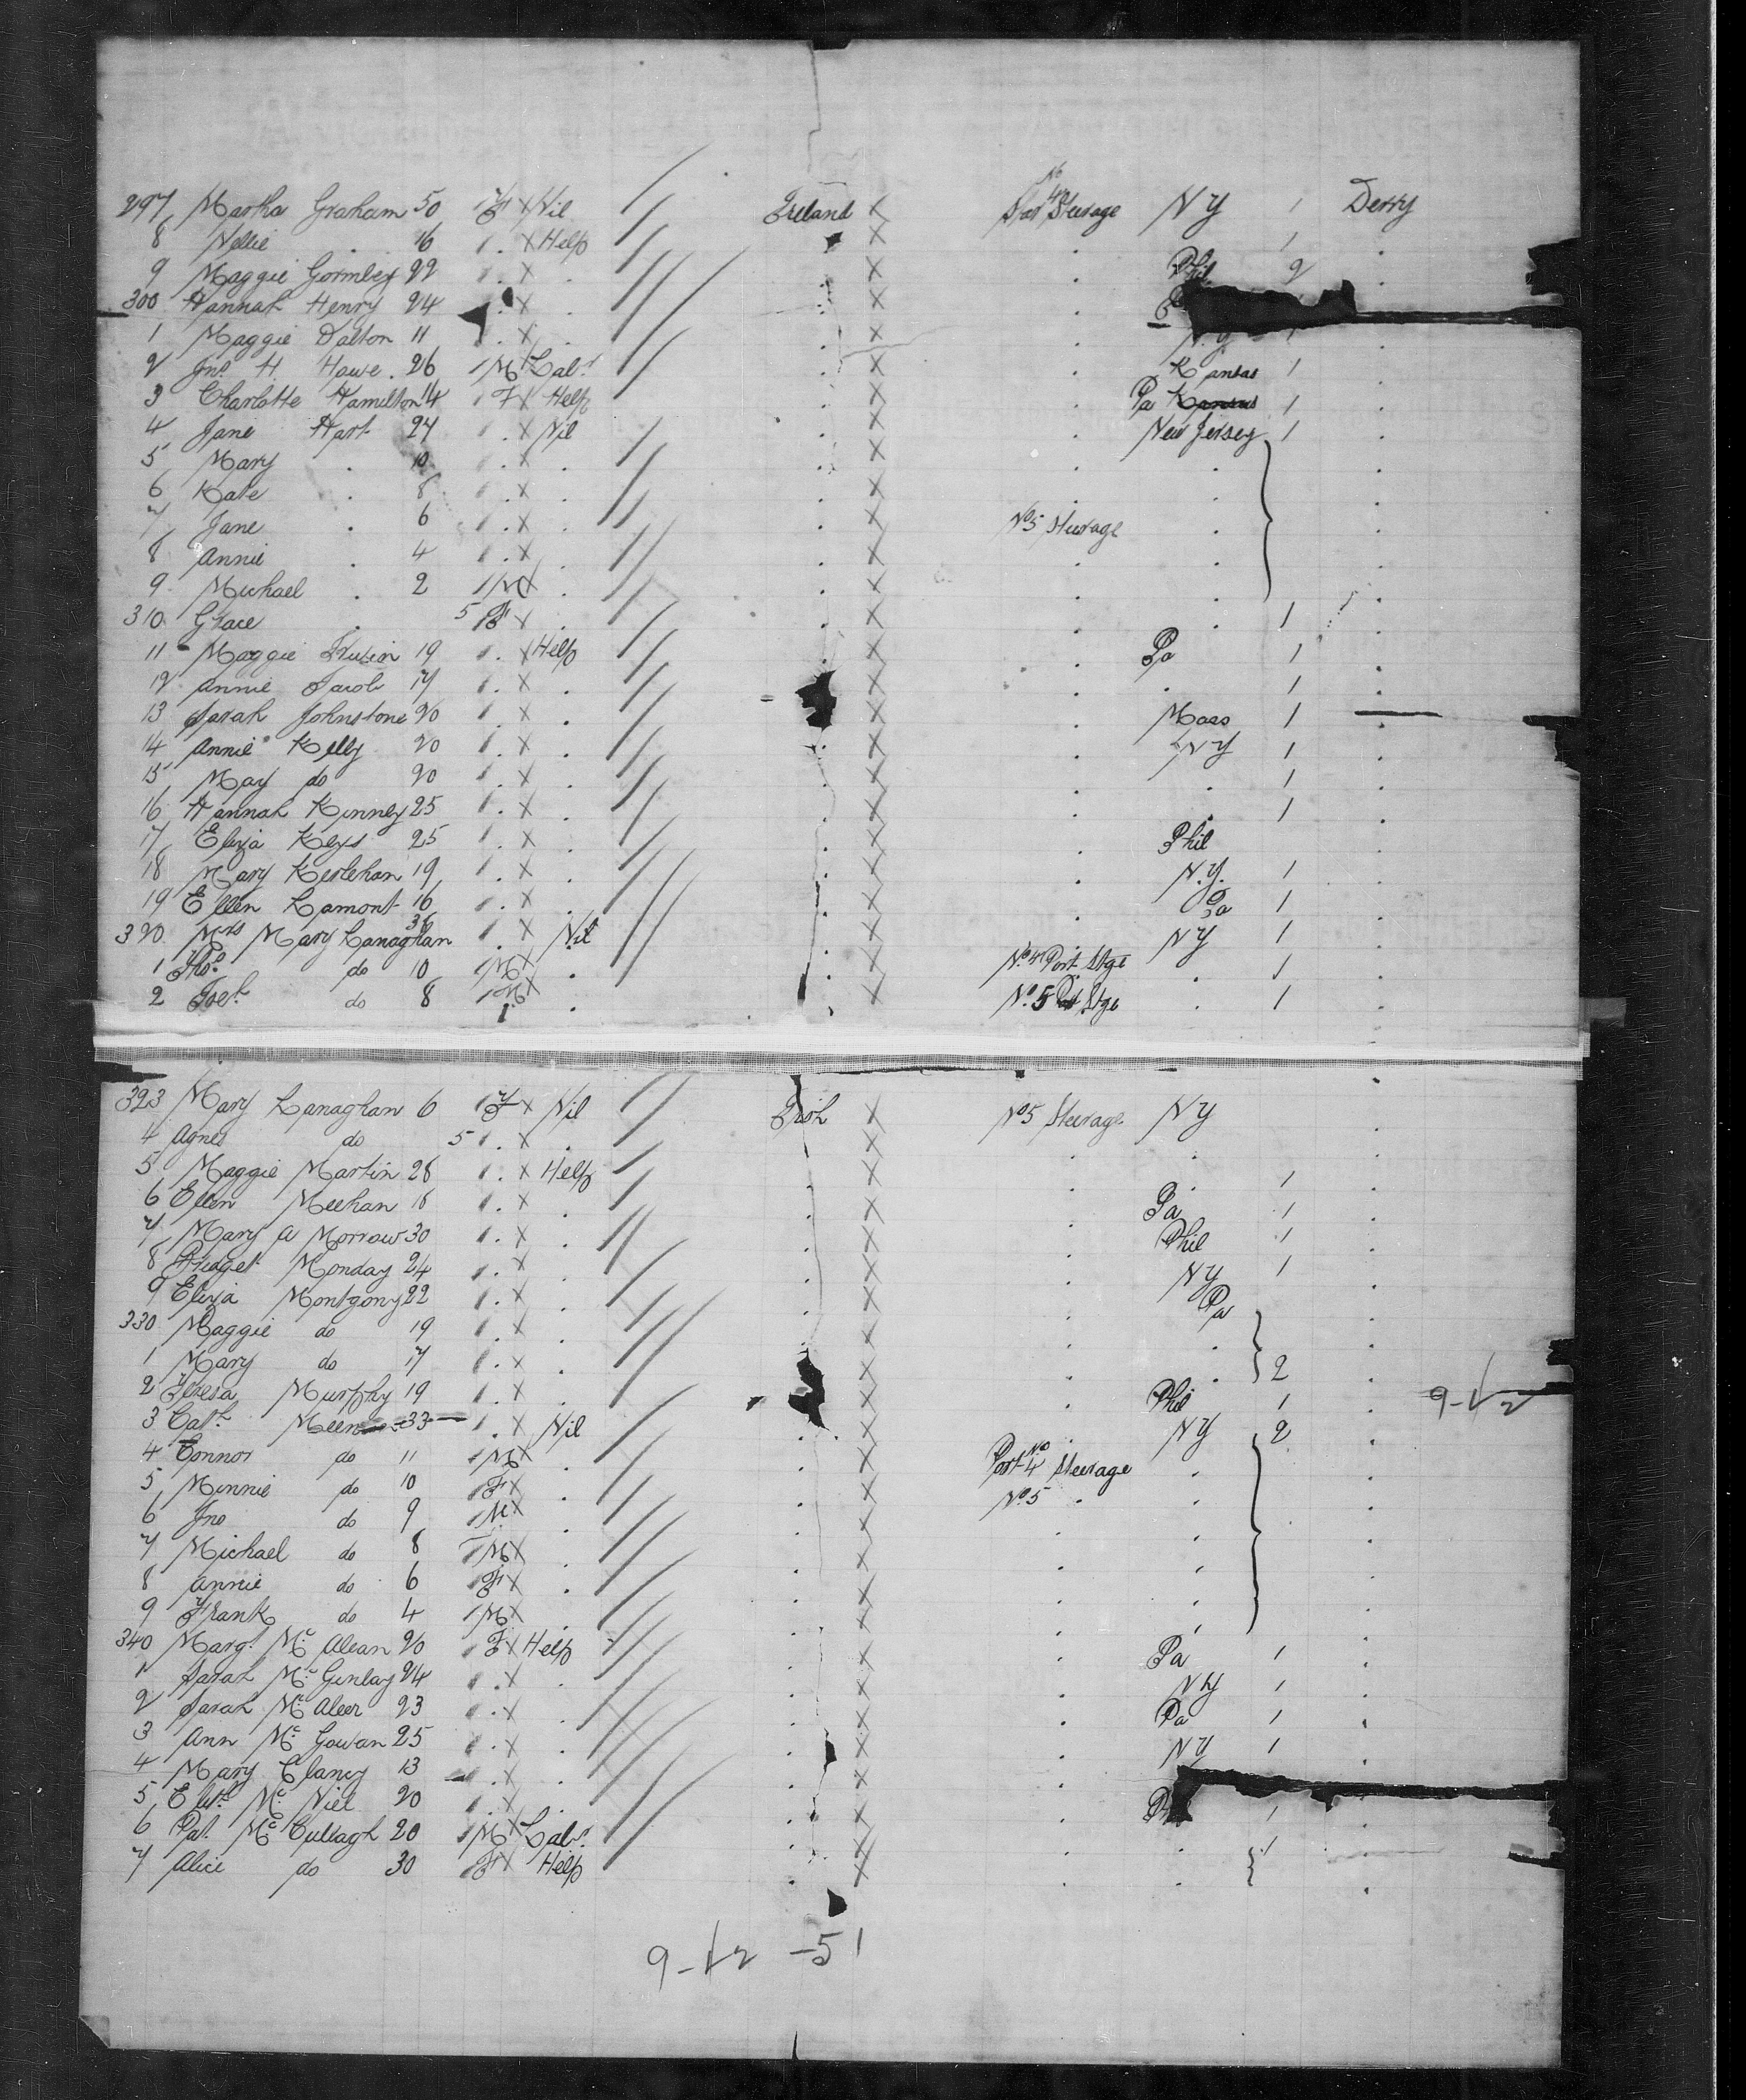 297 Martha Graham 50 F X Nil / Ireland X Star No 4 Steerage N Y 1 Derry
8 Nellie . 16 . X Help // . X . 1 .
9 Maggie Gormley 22 . X . // . X . Phil 2 .
300 Hannah Henry 24 . X . // . X .
1 Maggie Dalton 11 . X . // . X . N.Y 1 .
2 Jno. H. Howe. 26 M X Labr. // . X . Kansas 1 .
3 Charlotte Hamilton 14 F X Help // . X . Pa 1 .
4 Jane Hart 24 . X Nil // . X . New Jersey 1 .
5 Mary . 10 . X . // . X . . .
6 Kate . 8 . X . // . X . . .
7 Jane . 6 . X . // . X No 5 Steerage . .
8 Annie . 4 . X . // . X . . .
9 Michael . 2 M X . // . X . . .
310 Grace . 5 F X . // . X . . 1 .
11 Maggie 19 . X Help // . X . Pa 1 .
12 Annie 17 . X . // X . . 1 .
13 Sarah Johnstone 20 . X . // . X . Mass 1 .
14 Annie Kelly 20 . X . // . X . N Y 1 .
15 May do 20 . X . // . X . . 1 .
16 Hannah Kinney 25 . X . // . X . . 1 .
17 Eliza Keys 25 . X . // . X . Phil .
18 Mary Kerlehan 19 . X . // . X . N.Y. 1 .
19 Ellen Lamont 16 . X . // . X . Pa 1 .
320 Mrs Mary Lanaghan 36 . X Nil // . X N Y 1 .
1 Tho. do 10 M X . // . X No. 4 Port Stge . 1 .
2 do 8 M X . . X No. 5 Port Stge . 1 .
323 Mary Lanaghan 6 F X Nil // Irish X No 5 Steerage N Y .
4 Agnes do 5 . X . // X . . .
5 Maggie Martin 28 . X Help // . X . . 1 .
6 Ellen Meehan 18 . X . // . X . Pa 1 .
7 Mary A Morrow 30 . X . // . X . Phil 1 .
8 Bridget Monday 24 . X . // . X . N Y 1 .
9 Eliza Montgomy 22 . X . // . X . Pa .
330 Maggie do 19 . X . // . X . . .
1 Mary do 17 . X . // X . . 2 .
2 Teresa Murphy 19 . X . // . X . Phil 1 . 9-12
3 Cath. 33 . X Nil // . X . N Y 2 .
4 Connor do 11 M X . // . X Port No 4 Steerage . .
5 Minnie do 10 F X . // . X No. 5 . . .
6 Jno do 9 M X . // . X . . .
7 Michael do 8 M X . // . X . . .
8 Annie do 6 F X . // . X . . .
9 Frank do 4 M X . // . X . . .
340 Margt. Mc Alean 20 F X Help // . X . Pa 1 .
1 Sarah Mc Ginlay 24 . X . // . X . N Y 1 .
2 Sarah Mc Aleer 23 . X . // . X . Pa 1 .
3 Ann Mc Gowan 25 . X . // . X . N Y 1 .
4 Mary Clancy 13 . X . // . X .
5 Eliz. Mc Niel 20 . X . // . X . 1 .
6 Pat. Mc Cullagh 20 M X Labr. // . X . . 1 .
7 Alice do 30 F X Help . X . . .
9-12 -51